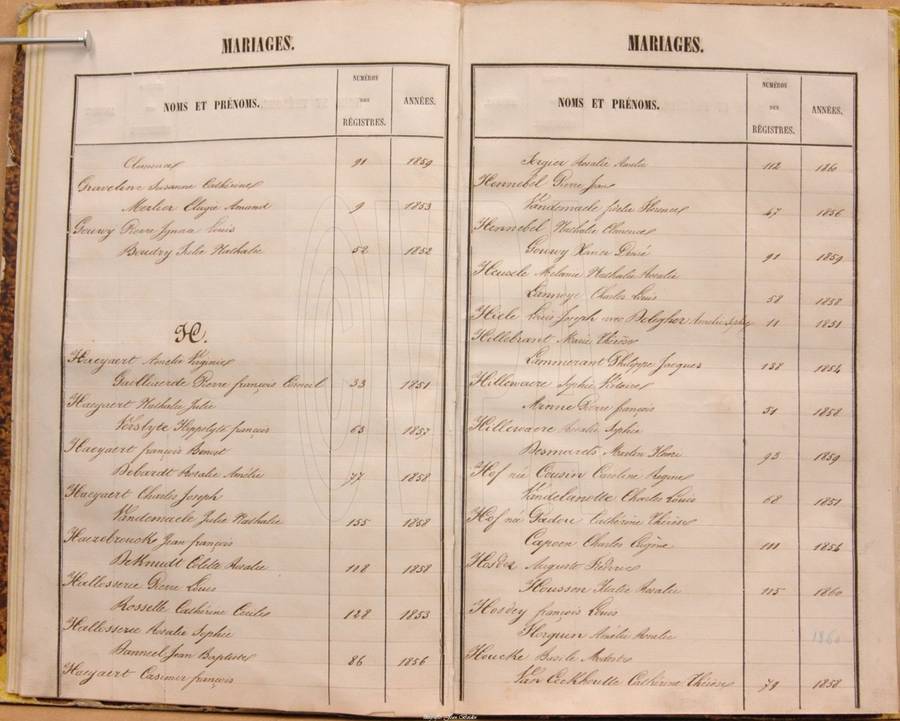 MARIAGES.
NOMS ET PRÉNOMS. NUMÉROS DES RÉGISTRES. ANNÉES.
Clemence 91 1859
Graveline Susanne Cathérine
Merlier Elugie Amand 9 1853
Gouwy Pierre Ignace Louis
Boudry Julie Nathalie 52 1852
H.
Haeyaert Amelie Virginie
Pierre françois 33 1851
Haeyaert Nathalie Julie
Verslyte Hippolyte françois 63 1857
Haeyaert françois Benoit
Debaedt Rosalie Amélie 77 1858
Haeyaert Charles Joseph
Vandemaele Julie Nathalie 155 1858
Haezebrouck Jean françois
DeKnudt Colette Rosalie 118 1858
Hallosserie Pierre Louis
Rosselle Cathérine Cecile 128 1853
Hallosserie Rosalie Sophie
Danneel Jean Baptiste 86 1856
Haeyaert Casimer françois
MARIAGES.
NOMS ET PRÉNOMS. NUMÉROS DES RÉGISTRES. ANNÉES.
Rosalie Amelie 112 1860
Hennebel Pierre Jean
Vandemaele Florence 47 1856
Hennebel Nathalie Clemence
Gouwy Xavier Désiré 91 1859
Heusele Melanie Nathalie Rosalie
Lannoye Charles Louis 58 1858
Hiele Louis Joseph avec Deleyher Amelie 11 1851
Hillebrant Marie Thérèse
Lammerant Philippe Jacques 138 1854
Hillewaere Sophie Victoire
Minne Pierre françois 51 1858
Hillewaere Rosalie Sophie
Desmarets Martin 93 1859
Hof née Cousin Caroline Regine
Vandelanotte Charles Louis 68 1851
Hof née Cathérine Thérèse
Capoen Charles Eugène 111 1854
Hosdez Auguste Fréderic
Housson Rosalie 115 1860
Hosdey françois Louis
Horquin Amélie Rosalie 1860
Houcke Basile Modeste
Van Eeckhoutte Cathérine Thérèse 79 1858